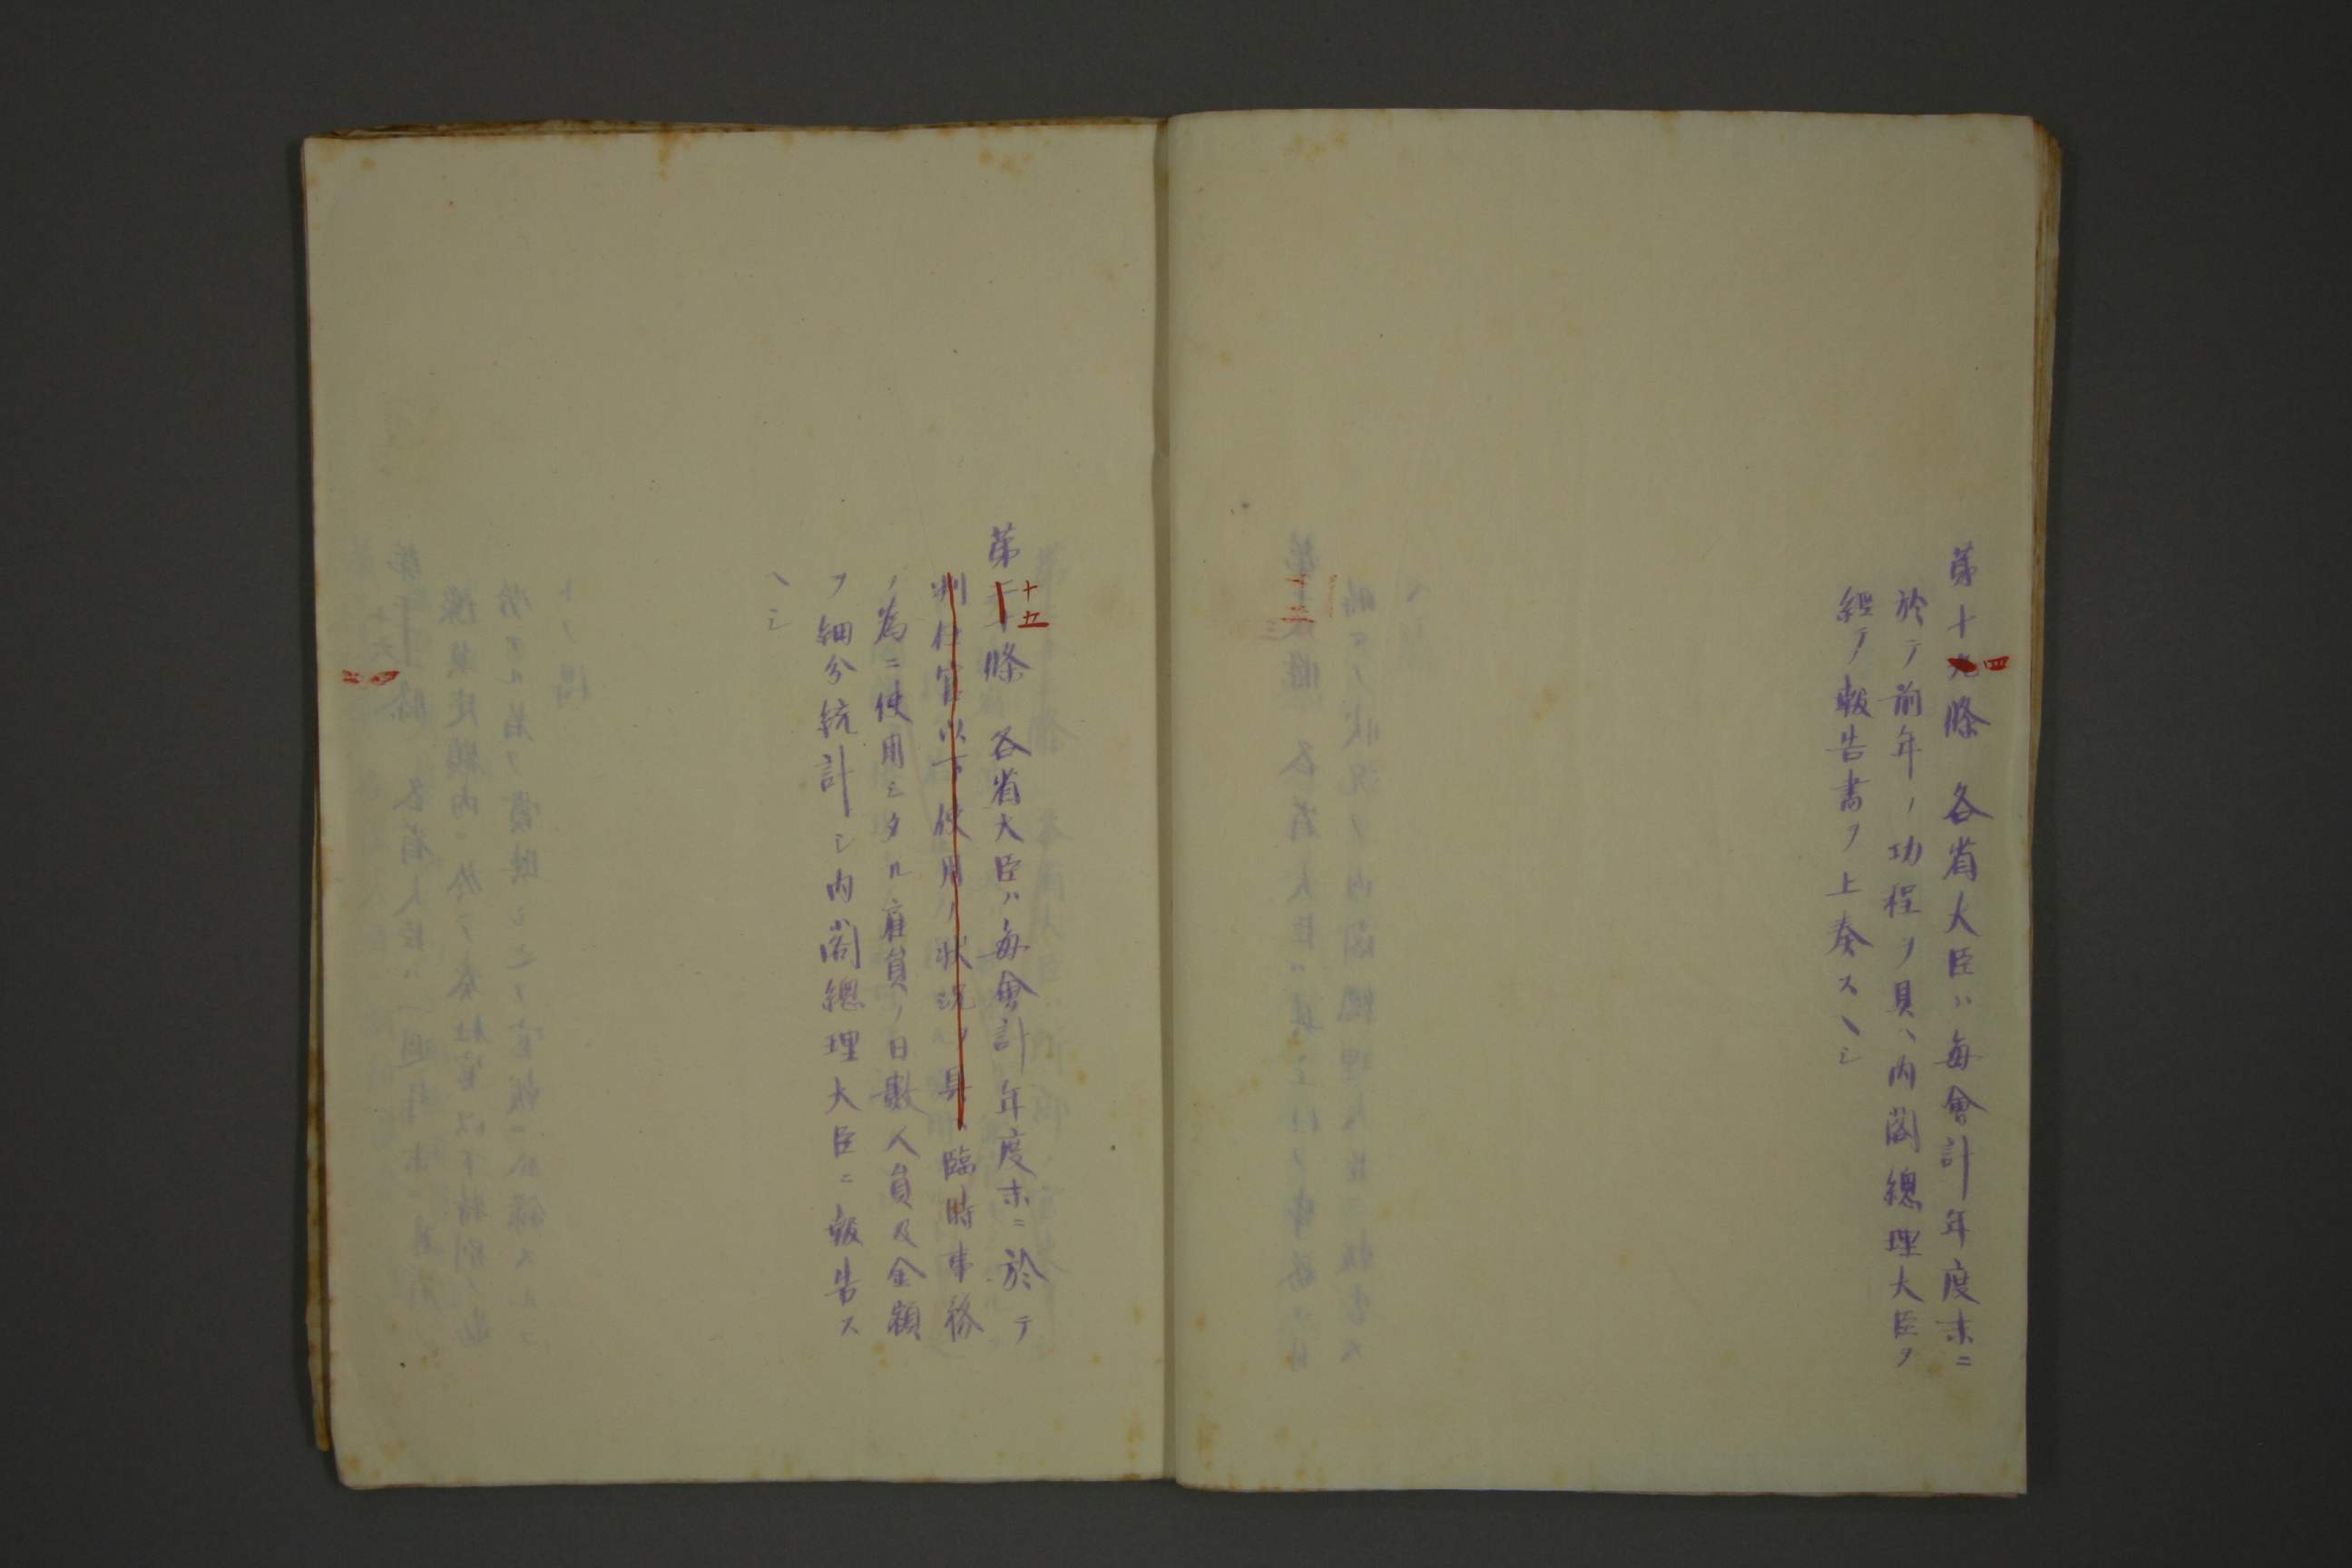 第十九四條　各省大臣ハ毎會計年度末ニ
於テ前年ノ功程ヲ具ヘ內閣總理大臣ヲ
經テ報告書ヲ上奏スヘシ
第二十十五條　各省大臣ハ毎會計年度末ニ於テ
判任官以下使用ノ狀況ヲ具ヘ臨時事務
ノ為ニ使用シタル雇員ノ日數人員及金額
ヲ細分統計シ內閣總理大臣ニ報告ス
ヘシ